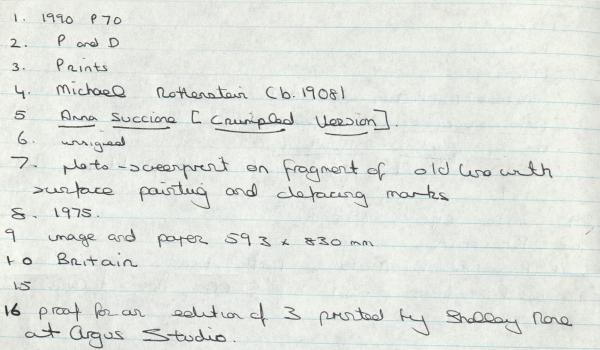 1. 1990 P70
2. P and D
3. Prints
4. Michael Rothenstein (b. 1908)
5 Anna Succione [Crumpled Version].
6. unsigned
7. photo-screenprint on fragment of old with
surface painting and defacing marks
8. 1975.
9 image and paper 593 x 830 mm
10 Britain
15
16 proof for an edition of 3 printed by Shelley Rose
at Argus Studio.